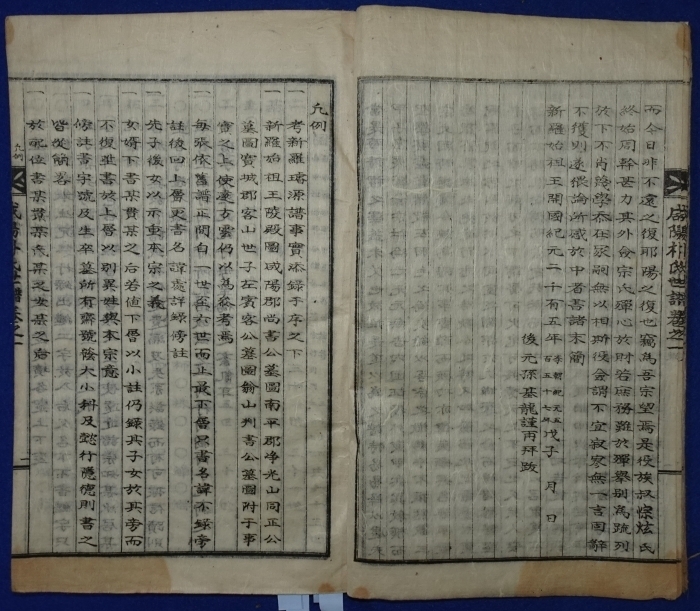 而今日非不遠之復耶陽之復也竊爲吾宗望焉是役族叔悰炫氏
終始周幹甚力其外僉宗氏殫心於財若
放下不肖
不獲則遂猥論所感於中者書諸末簡
新羅始祖王開國紀元二千百五年 戊子 月 日
後元孫基龍謹再拜跋
咸陽朴氏世譜卷之一
凡例
一 考新羅璿源譜事實添錄于序之下
一 新羅始祖王陵殿圖咸陽郡尚書公墓圖南平郡淨光山同正公
墓圖寶城郡客山世子左賓客公墓圖翁山判書公墓圖附于事
實之上使遠方雲仍以爲
一 每張依舊譜正間自一世至六世而正最下層只書名諱不錄旁
註後回上層更書名諱處詳錄旁註
一 先子後女以示重本宗之義
一 女婿下書某貫某下后若値下層以小註仍錄其子女於其旁而
不復進書於上層以別異姓與本宗意
一 旁註書字號及生卒墓所有齋號發大小科及懿行隱德則書之
皆從簡略
一 於配位書某貫某氏某之女某之后
凡例
咸陽朴氏世譜卷之一